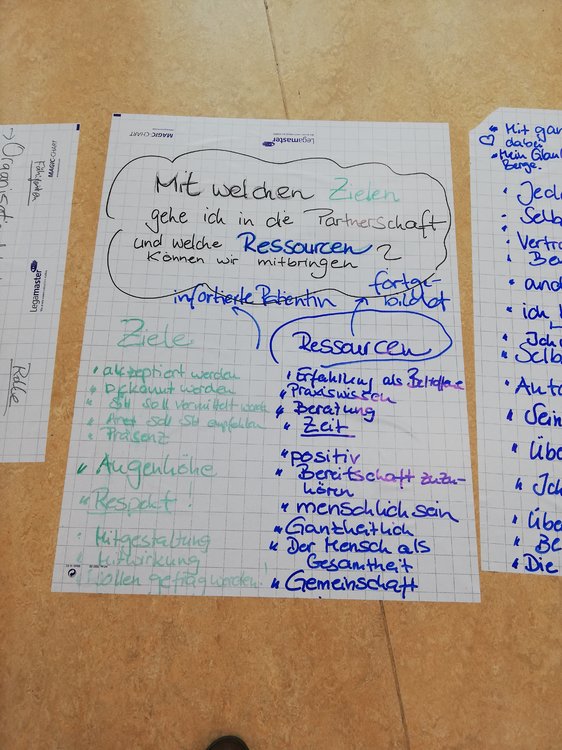 MAGIC-CHART
Legamaster
Mit welchen Zielen
gehe ich in die Partnerschaft
und welche Ressourcen ?
können wir mitbringen
infortierte Patientin
fortge-
bildet
Ziele
• akzeptiert werden
• bekannt werden
• SH soll vermittelt werden
• Arzt soll SH empfehlen
• Präsenz
• Augenhöhe
• Respekt!
• Mitgestaltung
• Mitwirkung
wollen gefragt werden!
Ressourcen
• Erfahrung als Betroffene
• Praxiswissen
• Beratung
• Zeit
• positiv
• Bereitschaft zuzu-
hören
• menschlich sein
• Ganzheitlich
• Der Mensch als
Gesamtheit
• Gemeinschaft
MAGIC-CHART
Legamaster
Rolle
• Mit gan
dabei
• Mein Glau
Berge.
• Jede
• Selb
• Vertra
Be
• and
• ich
• Ich
Selbs
• Auto
• Sein
• Übe
• Ich
• Übe
• Be
• Die